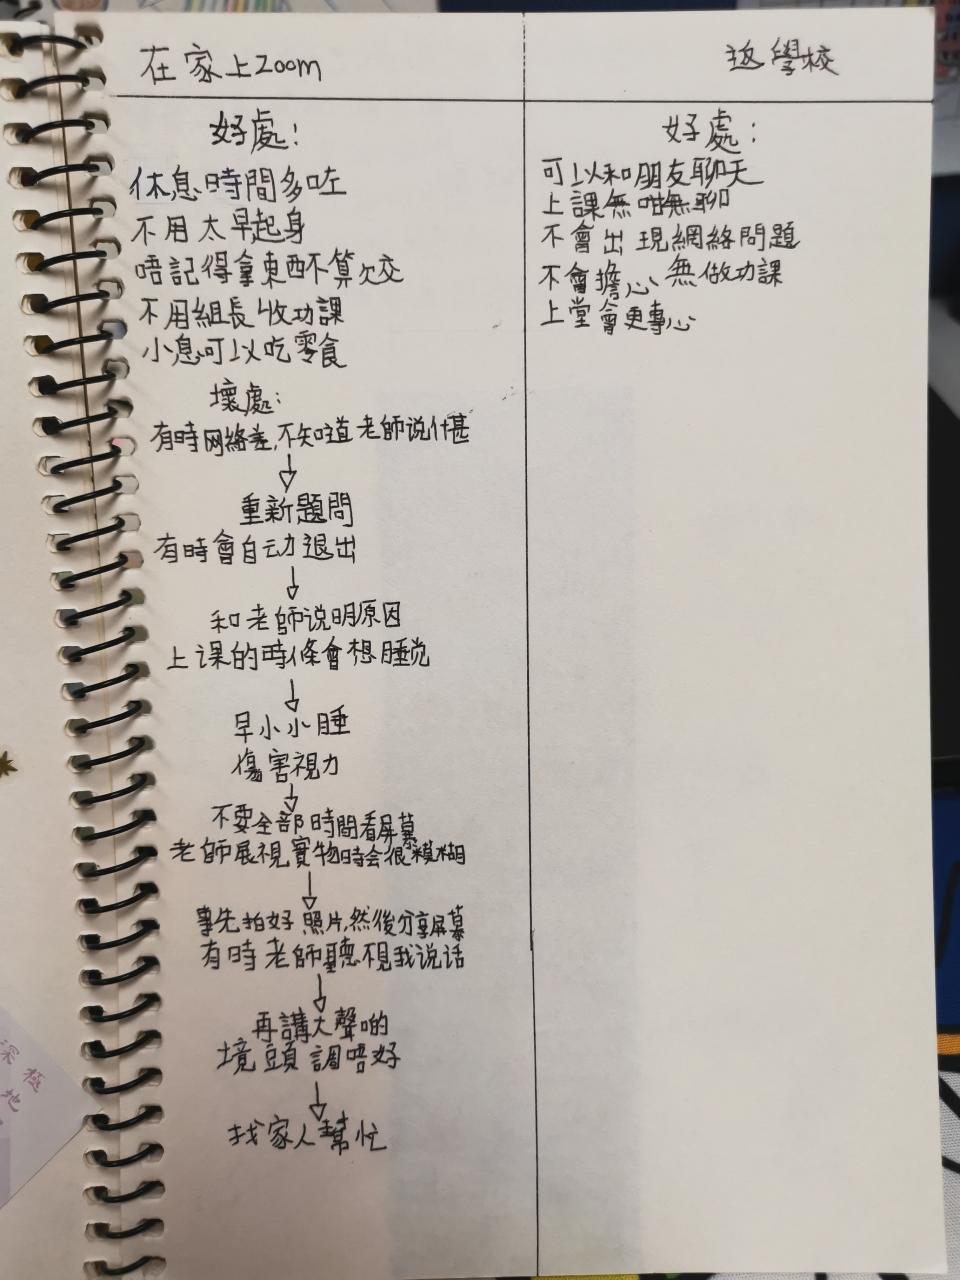 在家上Zoom
好處：
休息時間多咗
不用太早起身
唔記得拿東西不算欠交
不用組長收功課
小息可以吃零食
壞處：
有時网絡差,不知道老師说什甚
重新題問
有時會自动退出
和老師说明原因
上课的時候會想睡觉
早小小睡
傷害視力
不要全部時間看屏幕
老師展視實物時会很模糊
事先拍好照片,然後分享屏幕
有時老師聽不見我说话
再講大聲啲
境頭調唔好
找家人幫忙
返學校
好處：
可以和朋友聊天
上課無咁無聊
不會出現網絡問題
不會擔心無做功課
上堂會更專心
深極
地